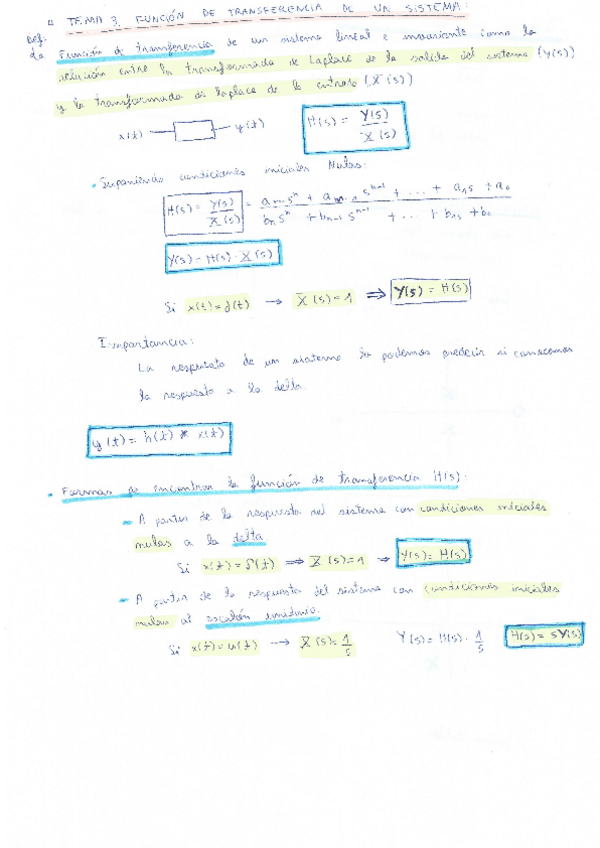 TEMA 3. FUNCIÓN DE TRANSFERENCIA DE UN SISTEMA:
Def.
La Función de transferencia de un sistema lineal e invariante como la
relación entre la transformada de Laplace de la salida del sistema (Y(s))
y la transformada de Laplace de la entrada (X(s))
x(t) y(t) H(s) = Y(s) / X(s)
• Suponiendo condiciones iniciales Nulas:
H(s) = Y(s) / X(s) = + ... + a₁s + a₀ / bₙsⁿ + bₙ₋₁sⁿ⁻¹ + ... + b₁s + b₀
Y(s) = H(s) · X(s)
Si x(t) = δ(t) → X(s) = 1 ⇒ Y(s) = H(s)
Importancia:
La respuesta de un sistema la podemos predecir si conocemos
la respuesta a la delta.
y(t) = h(t) * x(t)
• Formas de encontrar la función de transferencia H(s):
- A partir de la respuesta del sistema con condiciones iniciales
nulas a la delta
Si x(t) = δ(t) ⇒ X(s) = 1 → Y(s) = H(s)
- A partir de la respuesta del sistema con condiciones iniciales
nulas al escalón unitario.
Si x(t) = u(t) → X(s) = 1/s Y(s) = H(s) · 1/s H(s) = sY(s)